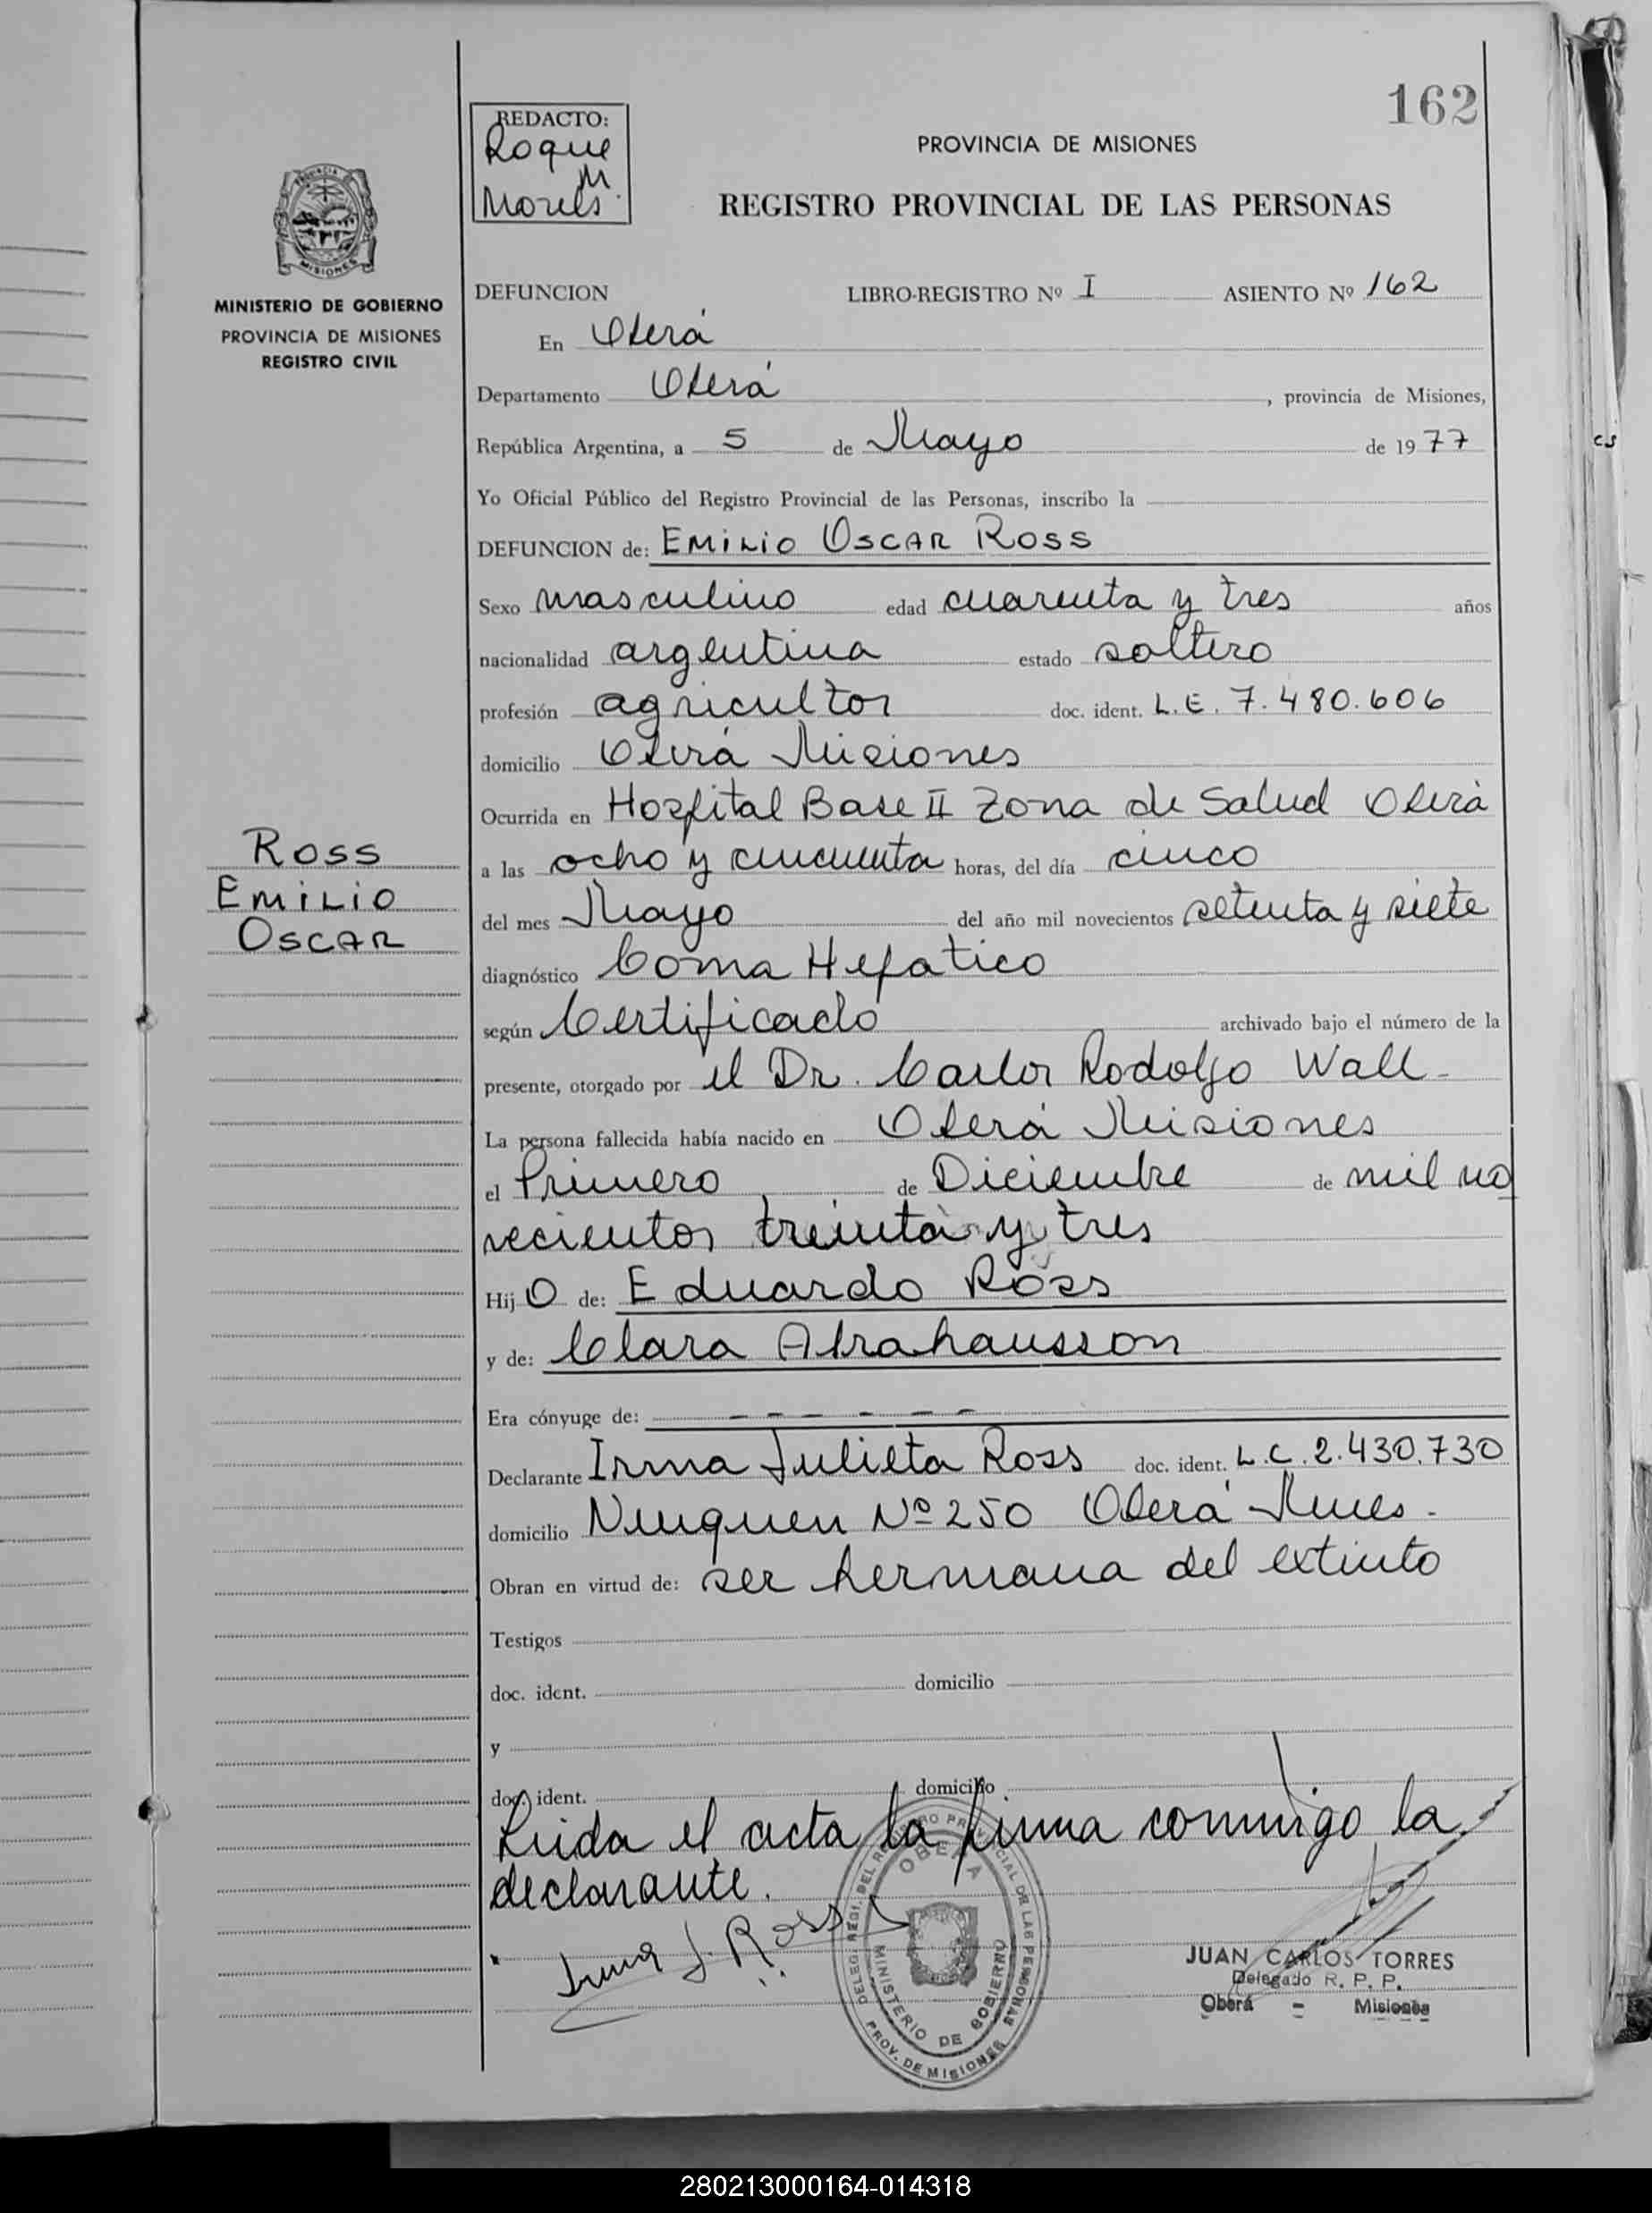 162
REDACTO:
Roque
M.
PROVINCIA DE MISIONES
REGISTRO PROVINCIAL DE LAS PERSONAS
MISIONES
MINISTERIO DE GOBIERNO
PROVINCIA DE MISIONES
REGISTRO CIVIL
DEFUNCION LIBRO-REGISTRO Nº I ASIENTO Nº 162
En Oberá
Departamento Oberá , provincia de Misiones,
República Argentina, a 5 de Mayo de 1977
Yo Oficial Público del Registro Provincial de las Personas, inscribo la
DEFUNCION de: EMILIO OSCAR ROSS
Sexo masculino edad cuarenta y tres años
nacionalidad argentina estado soltero
profesión agricultor doc. ident. L.E. 7.480.606
domicilio Oberá Misiones
Ocurrida en Hospital Base II Zona de Salud Oberá
Ross
Emilio
Oscar
a las ocho y cincuenta horas, del día cinco
del mes Mayo del año mil novecientos setenta y siete
diagnóstico Coma Hepatico
según Certificado archivado bajo el número de la
presente, otorgado por el Dr. Carlos Rodolfo Wall-
La persona fallecida había nacido en Oberá Misiones
el Primero de Diciembre de mil no
vecientos treinta y tres
Hijo de: Eduardo Ross
y de: Clara Abrahansson
Era cónyuge de: – – – – – –
Declarante Irma Julieta Ross doc. ident. L.C. 2.430.730
domicilio Neuquen Nº 250 Oberá Mnes.
Obran en virtud de: ser hermana del extinto
Testigos
doc. ident. domicilio
y
doc. ident. domicilio
Leida el acta la firma conmigo la
declarante.
Irma J. Ross
DELEG. REGI. DEL REGISTRO PROVINCIAL DE LAS PERSONAS
OBERA
MINISTERIO DE GOBIERNO
PROV. DE MISIONES
JUAN CARLOS TORRES
Delegado R. P. P.
Oberá - Misiones
280213000164-014318